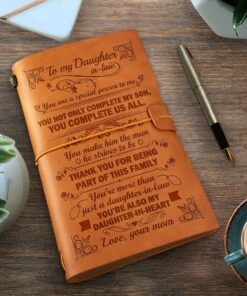 To my Daughter
in-law
You are a special person to me,
YOU NOT ONLY COMPLETE MY SON,
YOU COMPLETE US ALL.
You make him the man
he strives to be
THANK YOU FOR BEING
PART OF THIS FAMILY
You're more than
just a daughter-in-law
YOU'RE ALSO MY
DAUGHTER-IN-HEART
Love, your mom